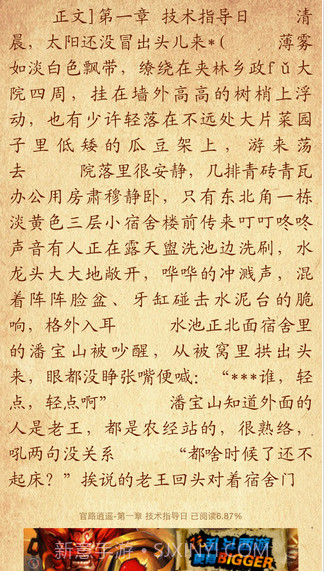 正文]第一章 技术指导日 清
晨，太阳还没冒出头儿来*( 薄雾
如淡白色飘带，缭绕在夹林乡政fǔ大
院四周，挂在墙外高高的树梢上浮
动，也有少许轻落在不远处大片菜园
子里低矮的瓜豆架上，游来荡
去 院落里很安静，几排青砖青瓦
办公用房肃穆静卧，只有东北角一栋
淡黄色三层小宿舍楼前传来叮叮咚咚
声音有人正在露天盥洗池边洗刷，水
龙头大大地敞开，哗哗的冲溅声，混
着阵阵脸盆、牙缸碰击水泥台的脆
响，格外入耳 水池正北面宿舍里
的潘宝山被吵醒，从被窝里拱出头
来，眼都没睁张嘴便喊：“***谁，轻
点，轻点啊” 潘宝山知道外面的
人是老王，都是农经站的，很熟络，
吼两句没关系 “都啥时候了还不
起床？”挨说的老王回头对着宿舍门
官路逍遥-第一章 技术指导日 已阅读6.87%
新喜手游·SJXINXY.COM
BIGGER